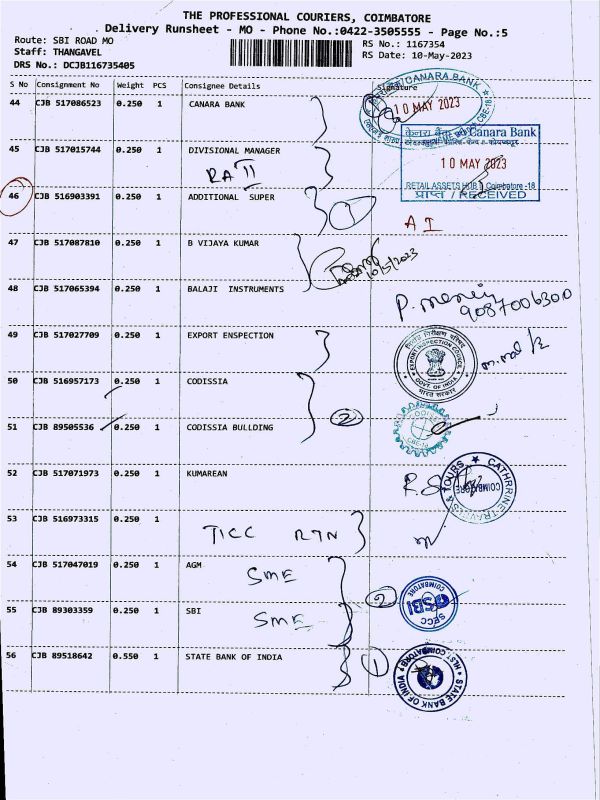 THE PROFESSIONAL COURIERS, COIMBATORE
Delivery Runsheet - MO - Phone No.:0422-3505555 - Page No.:5
Route: SBI ROAD MO
RS No.: 1167354
Staff: THANGAVEL
RS Date: 10-May-2023
DRS No.: DCJB116735405
S No Consignment No Weight PCS Consignee Details Signature
44 CJB 517086523 0.250 1 CANARA BANK
CANARA BANK
10 MAY 2023
45 CJB 517015744 0.250 1 DIVISIONAL MANAGER
केनरा बैंक Canara Bank
10 MAY 2023
RETAIL ASSETS HUB Coimbatore -18
प्राप्त / RECEIVED
RA II
46 CJB 516903391 0.250 1 ADDITIONAL SUPER
1
A I
47 CJB 517087810 0.250 1 B VIJAYA KUMAR
10/5/2023
48 CJB 517065394 0.250 1 BALAJI INSTRUMENTS
9087006300
49 CJB 517027709 0.250 1 EXPORT ENSPECTION
EXPORT INSPECTION COUNCIL
GOVT. OF INDIA
भारत सरकार
50 CJB 516957173 0.250 1 CODISSIA
51 CJB 89505536 0.250 1 CODISSIA BULLDING
2
52 CJB 517071973 0.250 1 KUMAREAN
CATHRRINE TRAVELS & TOURS
COIMBATORE
53 CJB 516973315 0.250 1
TICC RTN
54 CJB 517047019 0.250 1 AGM
SME
2
55 CJB 89303359 0.250 1 SBI
SME
COIMBATORE
SBI
SECC
56 CJB 89518642 0.550 1 STATE BANK OF INDIA
1
STATE BANK OF INDIA